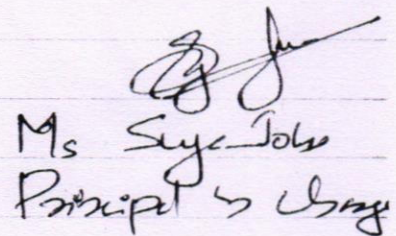 Ms Suja John
Principal in Charge